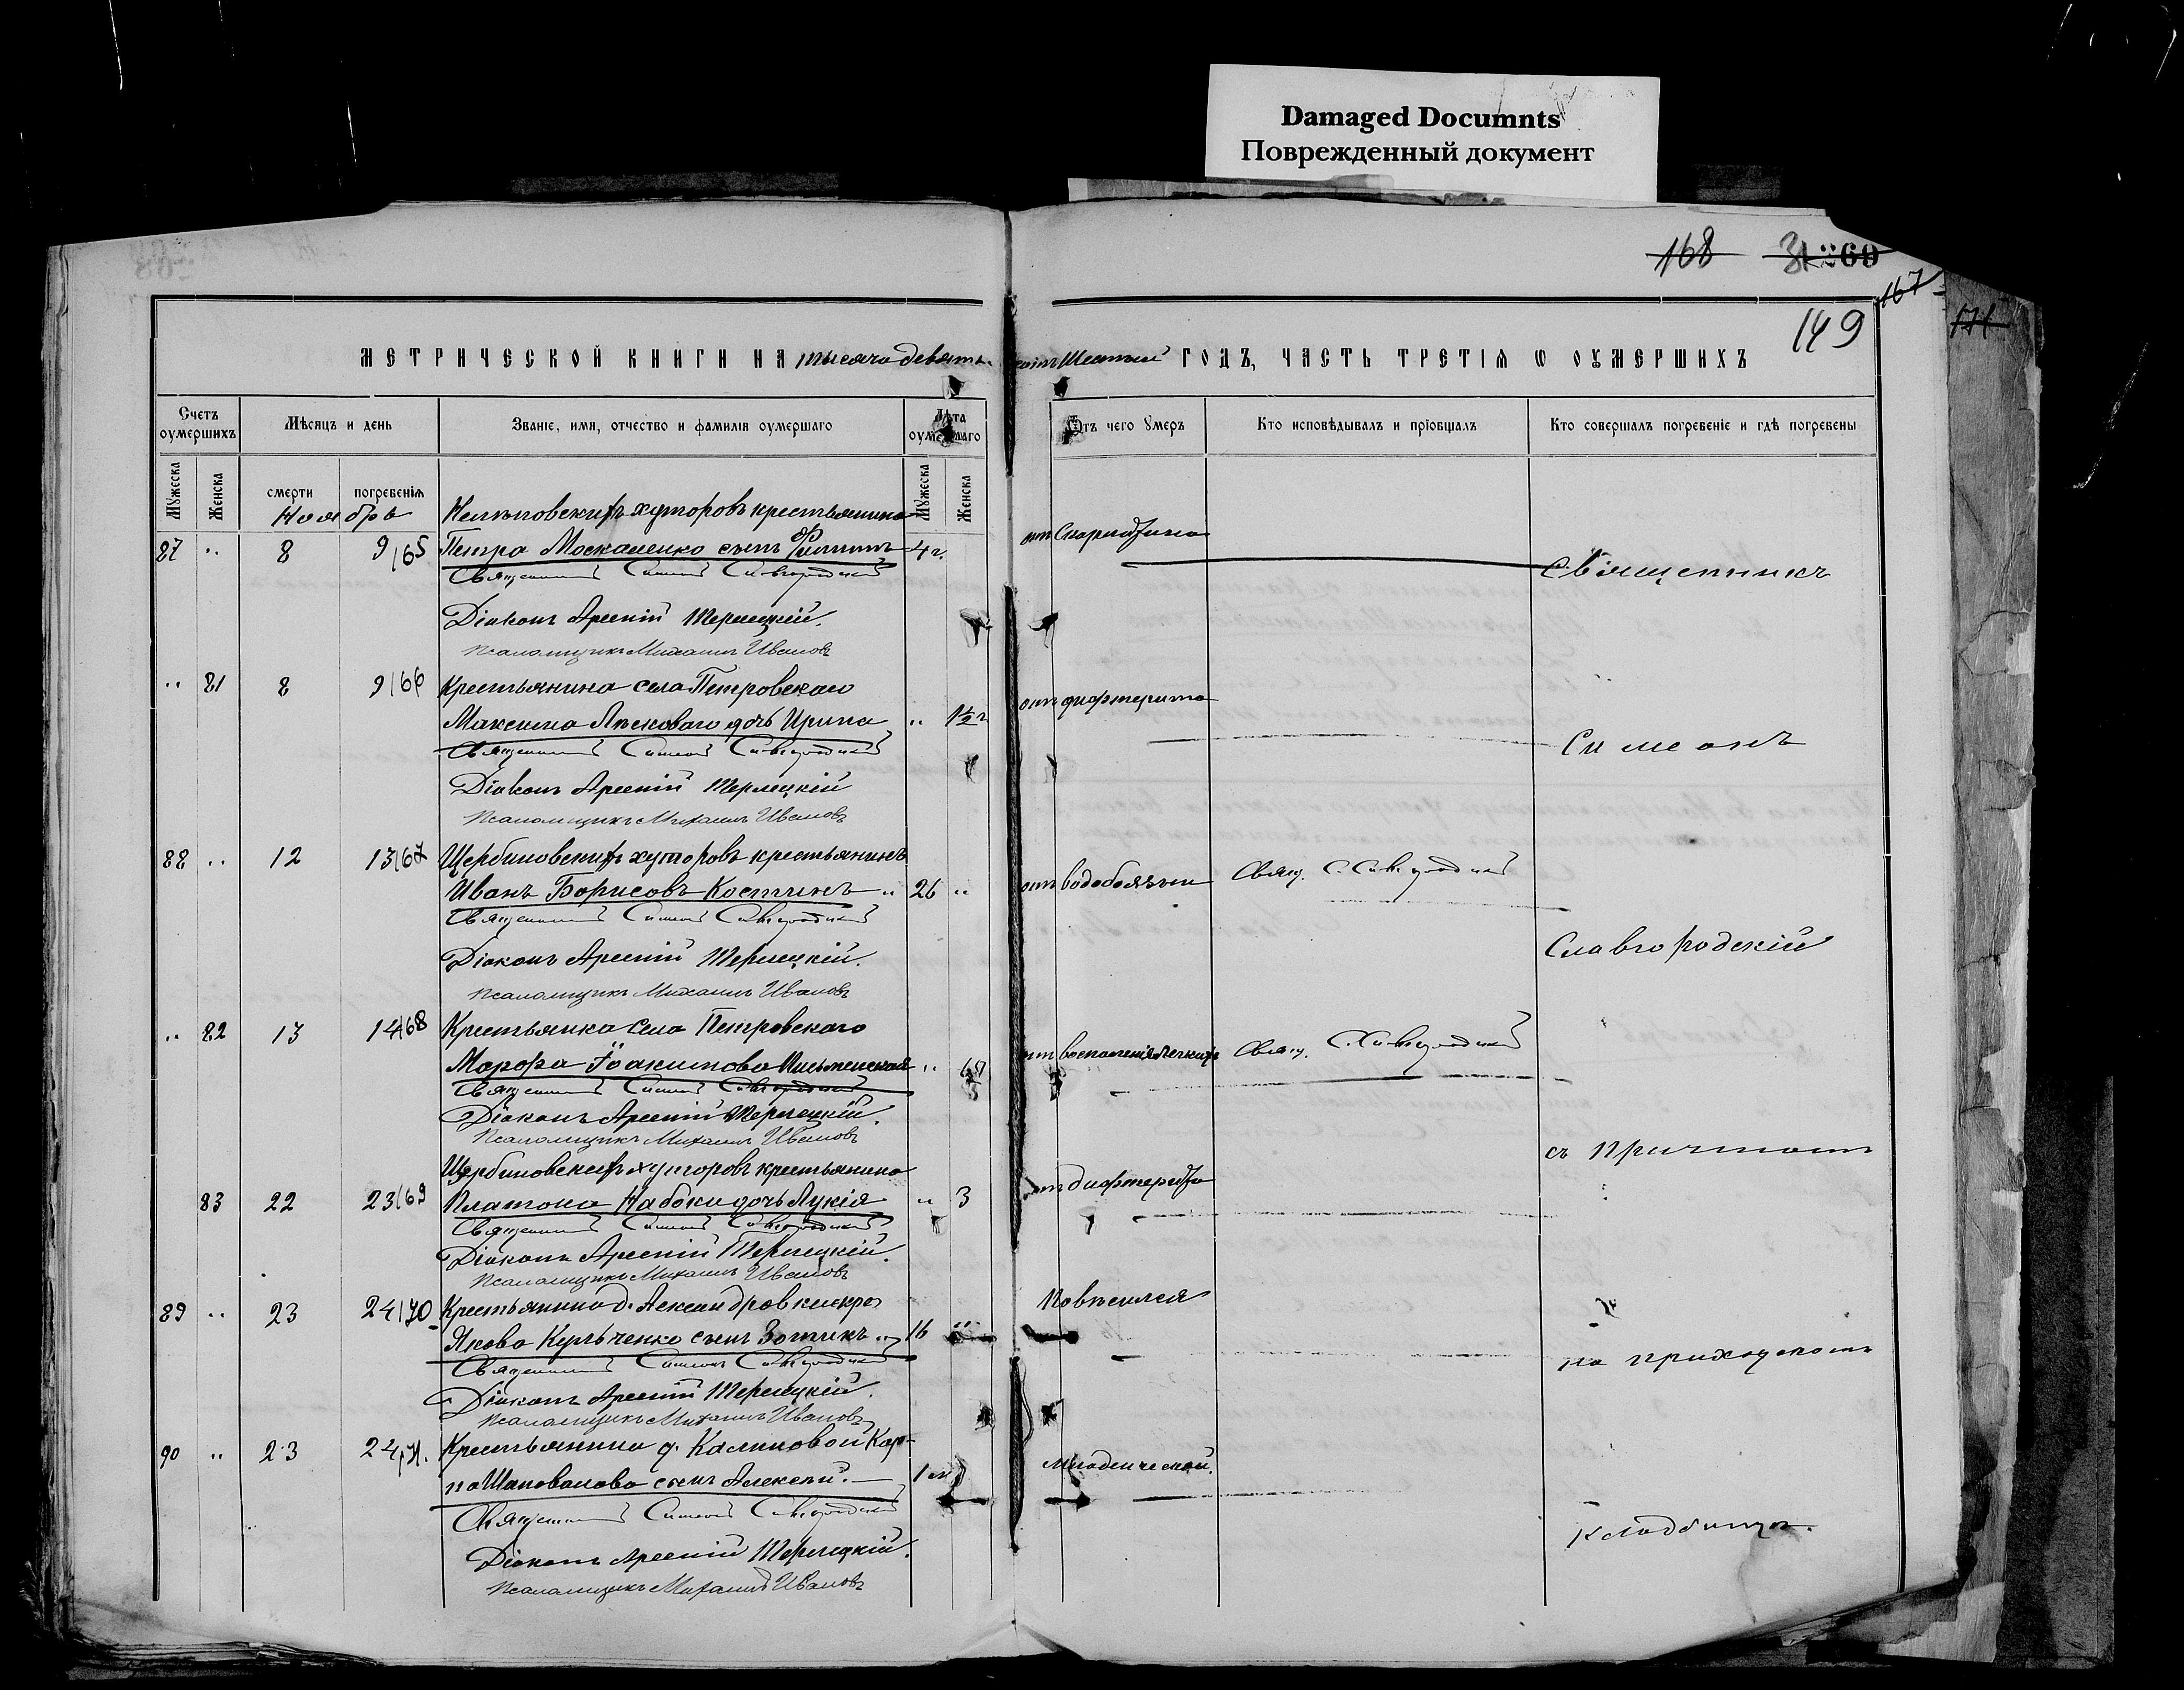 Damaged Documnts
Поврежденный документ
168
149
167
МЕТРИЧЕСКОЙ КНИГИ НА тысяча девять сотъ шестый ГОДЪ, ЧАСТЬ ТРЕТІЯ Ѡ ОУМЕРШИХЪ
Счетъ оумершихъ
Мѣсяцъ и день
Званіе, имя, отчество и фамилія оумершаго
Лѣта оумершаго
Отъ чего умеръ
Кто исповѣдывалъ и пріобщалъ
Кто совершалъ погребеніе и гдѣ погребены
Мужеска
Женска
смерти
погребенія
Мужеска
Женска
Ноябрь
хуторовъ крестьянина
87 " 8 9/65 Петра Москаленко сынъ Филиппъ 4 г. отъ Скарлатина
Священникъ Симеонъ Славгородскій
Священникъ
Діаконъ Арсеній Терлецкій.
Псаломщикъ Михаилъ Ивановъ
" 81 8 9/66 Крестьянина села Петровскаго
Максима Лѣсковаго дочь Ирина " 1½ г отъ дифтерита
Священникъ Симеонъ Славгородскій
Симеонъ
Діаконъ Арсеній Терлецкій
Псаломщикъ Михаилъ Ивановъ
88 " 12 13/67 Щербиновскихъ хуторовъ крестьянинъ
Иванъ Борисовъ Костинъ " 26 " отъ водобоязни Свящ. С. Славгородскій
Священникъ Симеонъ Славгородскій
Славгородскій
Діаконъ Арсеній Терлецкій.
Псаломщикъ Михаилъ Ивановъ
" 82 13 14/68 Крестьянка села Петровскаго
Марфа Іоакимова Письменская " отъ воспаленія легкихъ Свящ. С. Славгородскій
Священникъ Симеонъ Славгородскій
Діаконъ Арсеній Терлецкій.
Псаломщикъ Михаилъ Ивановъ
съ причтомъ
Щербиновскихъ хуторовъ крестьянина
83 22 23/69 Платона Набоки дочь Лукія " 3 отъ дифтерита
Священникъ Симеонъ Славгородскій
Діаконъ Арсеній Терлецкій.
Псаломщикъ Михаилъ Ивановъ
89 " 23 24/70 Крестьянина д. Александровки
Якова сынъ Зотикъ " 16 " Повѣсился
Священникъ Симеонъ Славгородскій
на приходскомъ
Діаконъ Арсеній Терлецкій.
Псаломщикъ Михаилъ Ивановъ
90 " 23 24/71. Крестьянина д. Калиновой Кар-
па Шаповалова сынъ Алексѣй. 1 м Младенческой.
Священникъ Симеонъ Славгородскій
кладбищѣ.
Діаконъ Арсеній Терлецкій.
Псаломщикъ Михаилъ Ивановъ